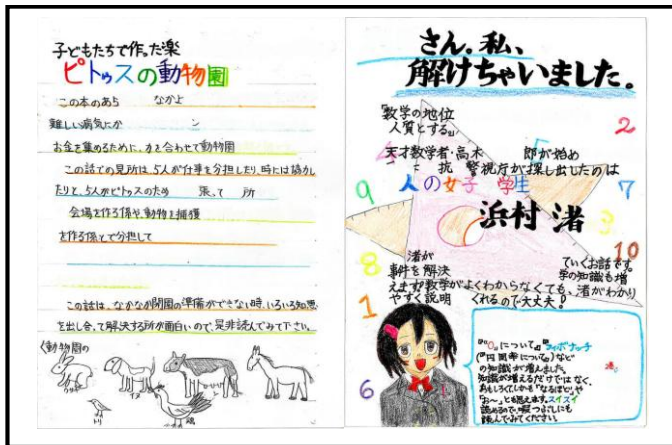 子どもたちで作った楽
ピトゥスの動物園
この本のあら なかよ
難しい病気にか
お金を集めるために、力を合わせて動物園
この話での見所は、5人が仕事を分担したり、時には協力し
たりと、5人がピトゥスのため 張って 所
会場を作る係や、動物を捕獲
を作る係とで分担して
この話は、なかなか開園の準備ができない時、いろいろ知恵
を出し合って解決する所が面白いので、是非読んでみて下さい。
動物園の
ウサギ
イヌ
トリ
鶏
さん。私、
解けちゃいました。
数学の地位
人質とする。」
天才数学者・高木 郎が始め
挑 警視庁が探し出したのは
人の女子 学生
浜村 渚
2
9
7
8
10
1
6
渚が
事件を解決 ていくお話です。
学の知識も増
えます!数学がよくわからなくても、渚がわかり
やすく説明 くれるので大丈夫!
『"0"について』『フィボナッチ
『円周率について』など
の知識が増えました。
知識が増えるだけではなく、
おもしろくて、しかも「なるほど」や
「お〜」とも思えます。スイスイ
読めるので、暇つぶしにも
読んでみてください。